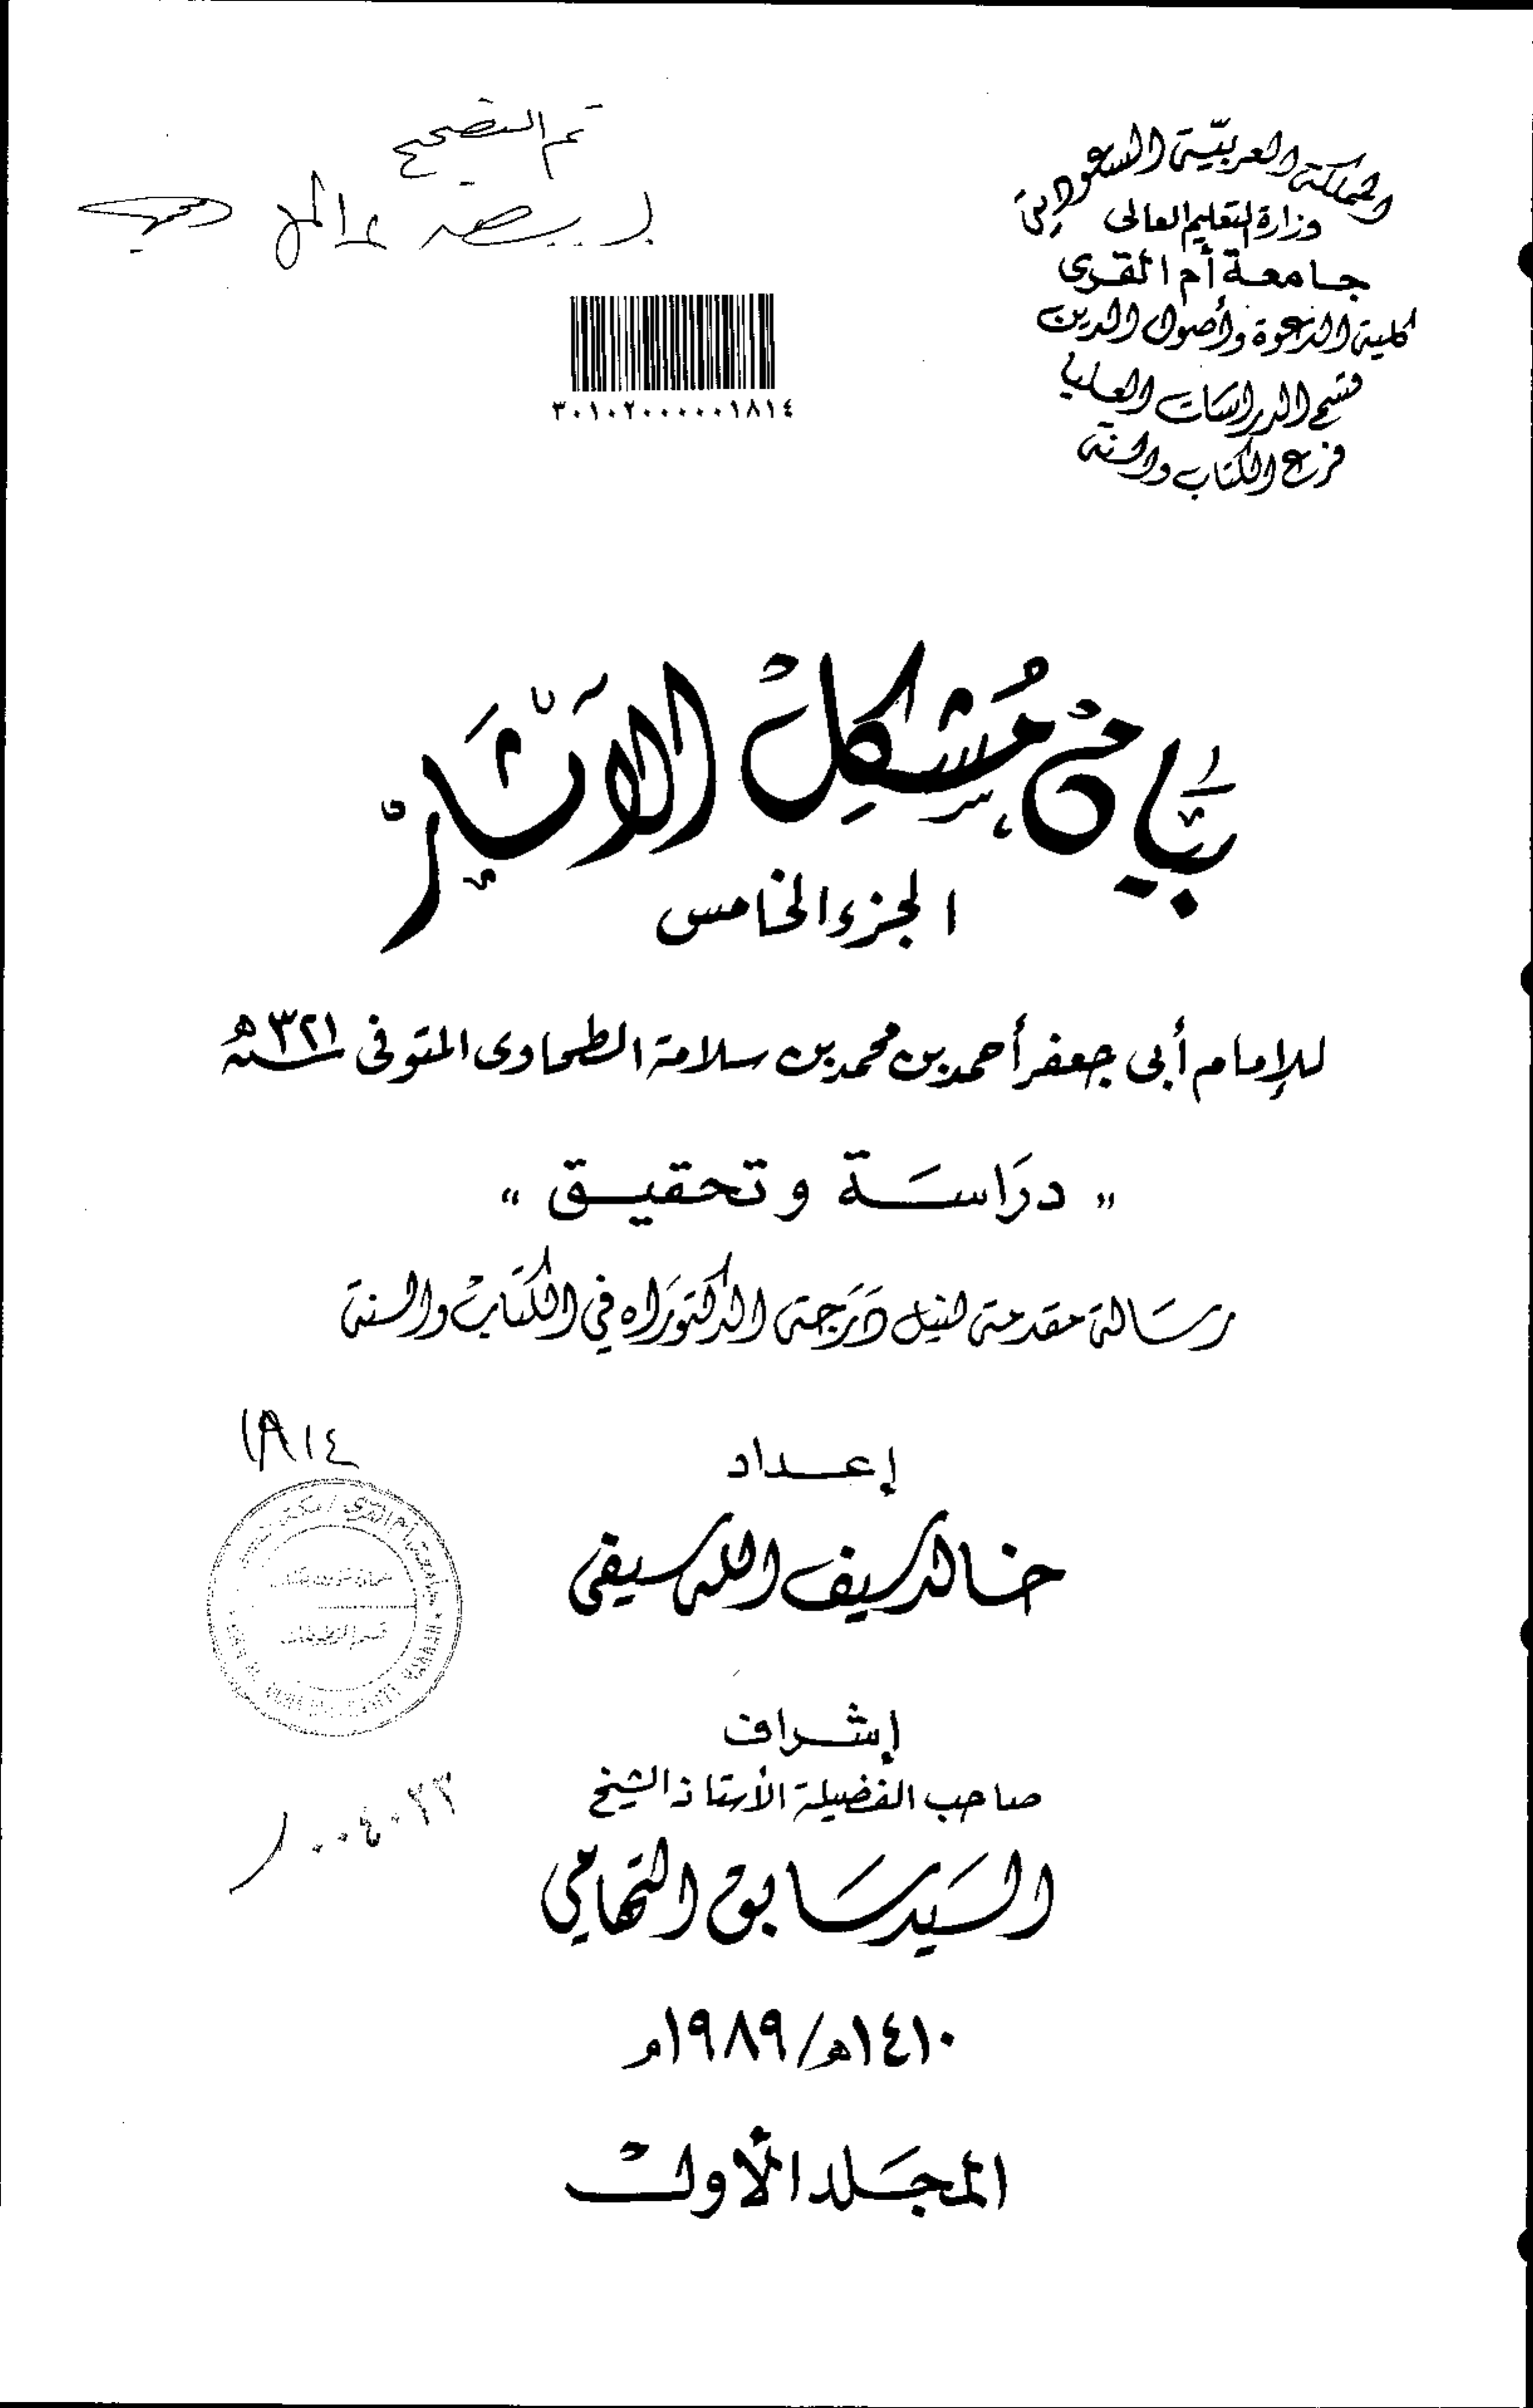 المملكة العربيّة السعودية
وزارة التعليم العالى
جامعة أم القرى
كلية الدعوة وأصول الدين
قسم الدراسات العليا
فرع الكتاب والسنة
تم التصحيح
٣٠١٠٢٠٠٠٠٠٠١٨١٤
بَيَان مُشكِل الآثَار
الجزء الخامس
للإمام أبى جعفر أحمد بن محمد بن سلامة الطحاوى المتوفى سنة ٣٢١ هـ
" درَاسَة وتحقيق "
رسَالة مقدمة لنيل دَرَجة الدكتورَاه في الكتَاب والسنة
١٨١٤
إعداد
خالد سيف الله سيفى
إشراف
صاحب الفضيلة الأستاذ الشيخ
السَيد سَابق التهامي
١٤١٠هـ/١٩٨٩م
المجَلد الأول